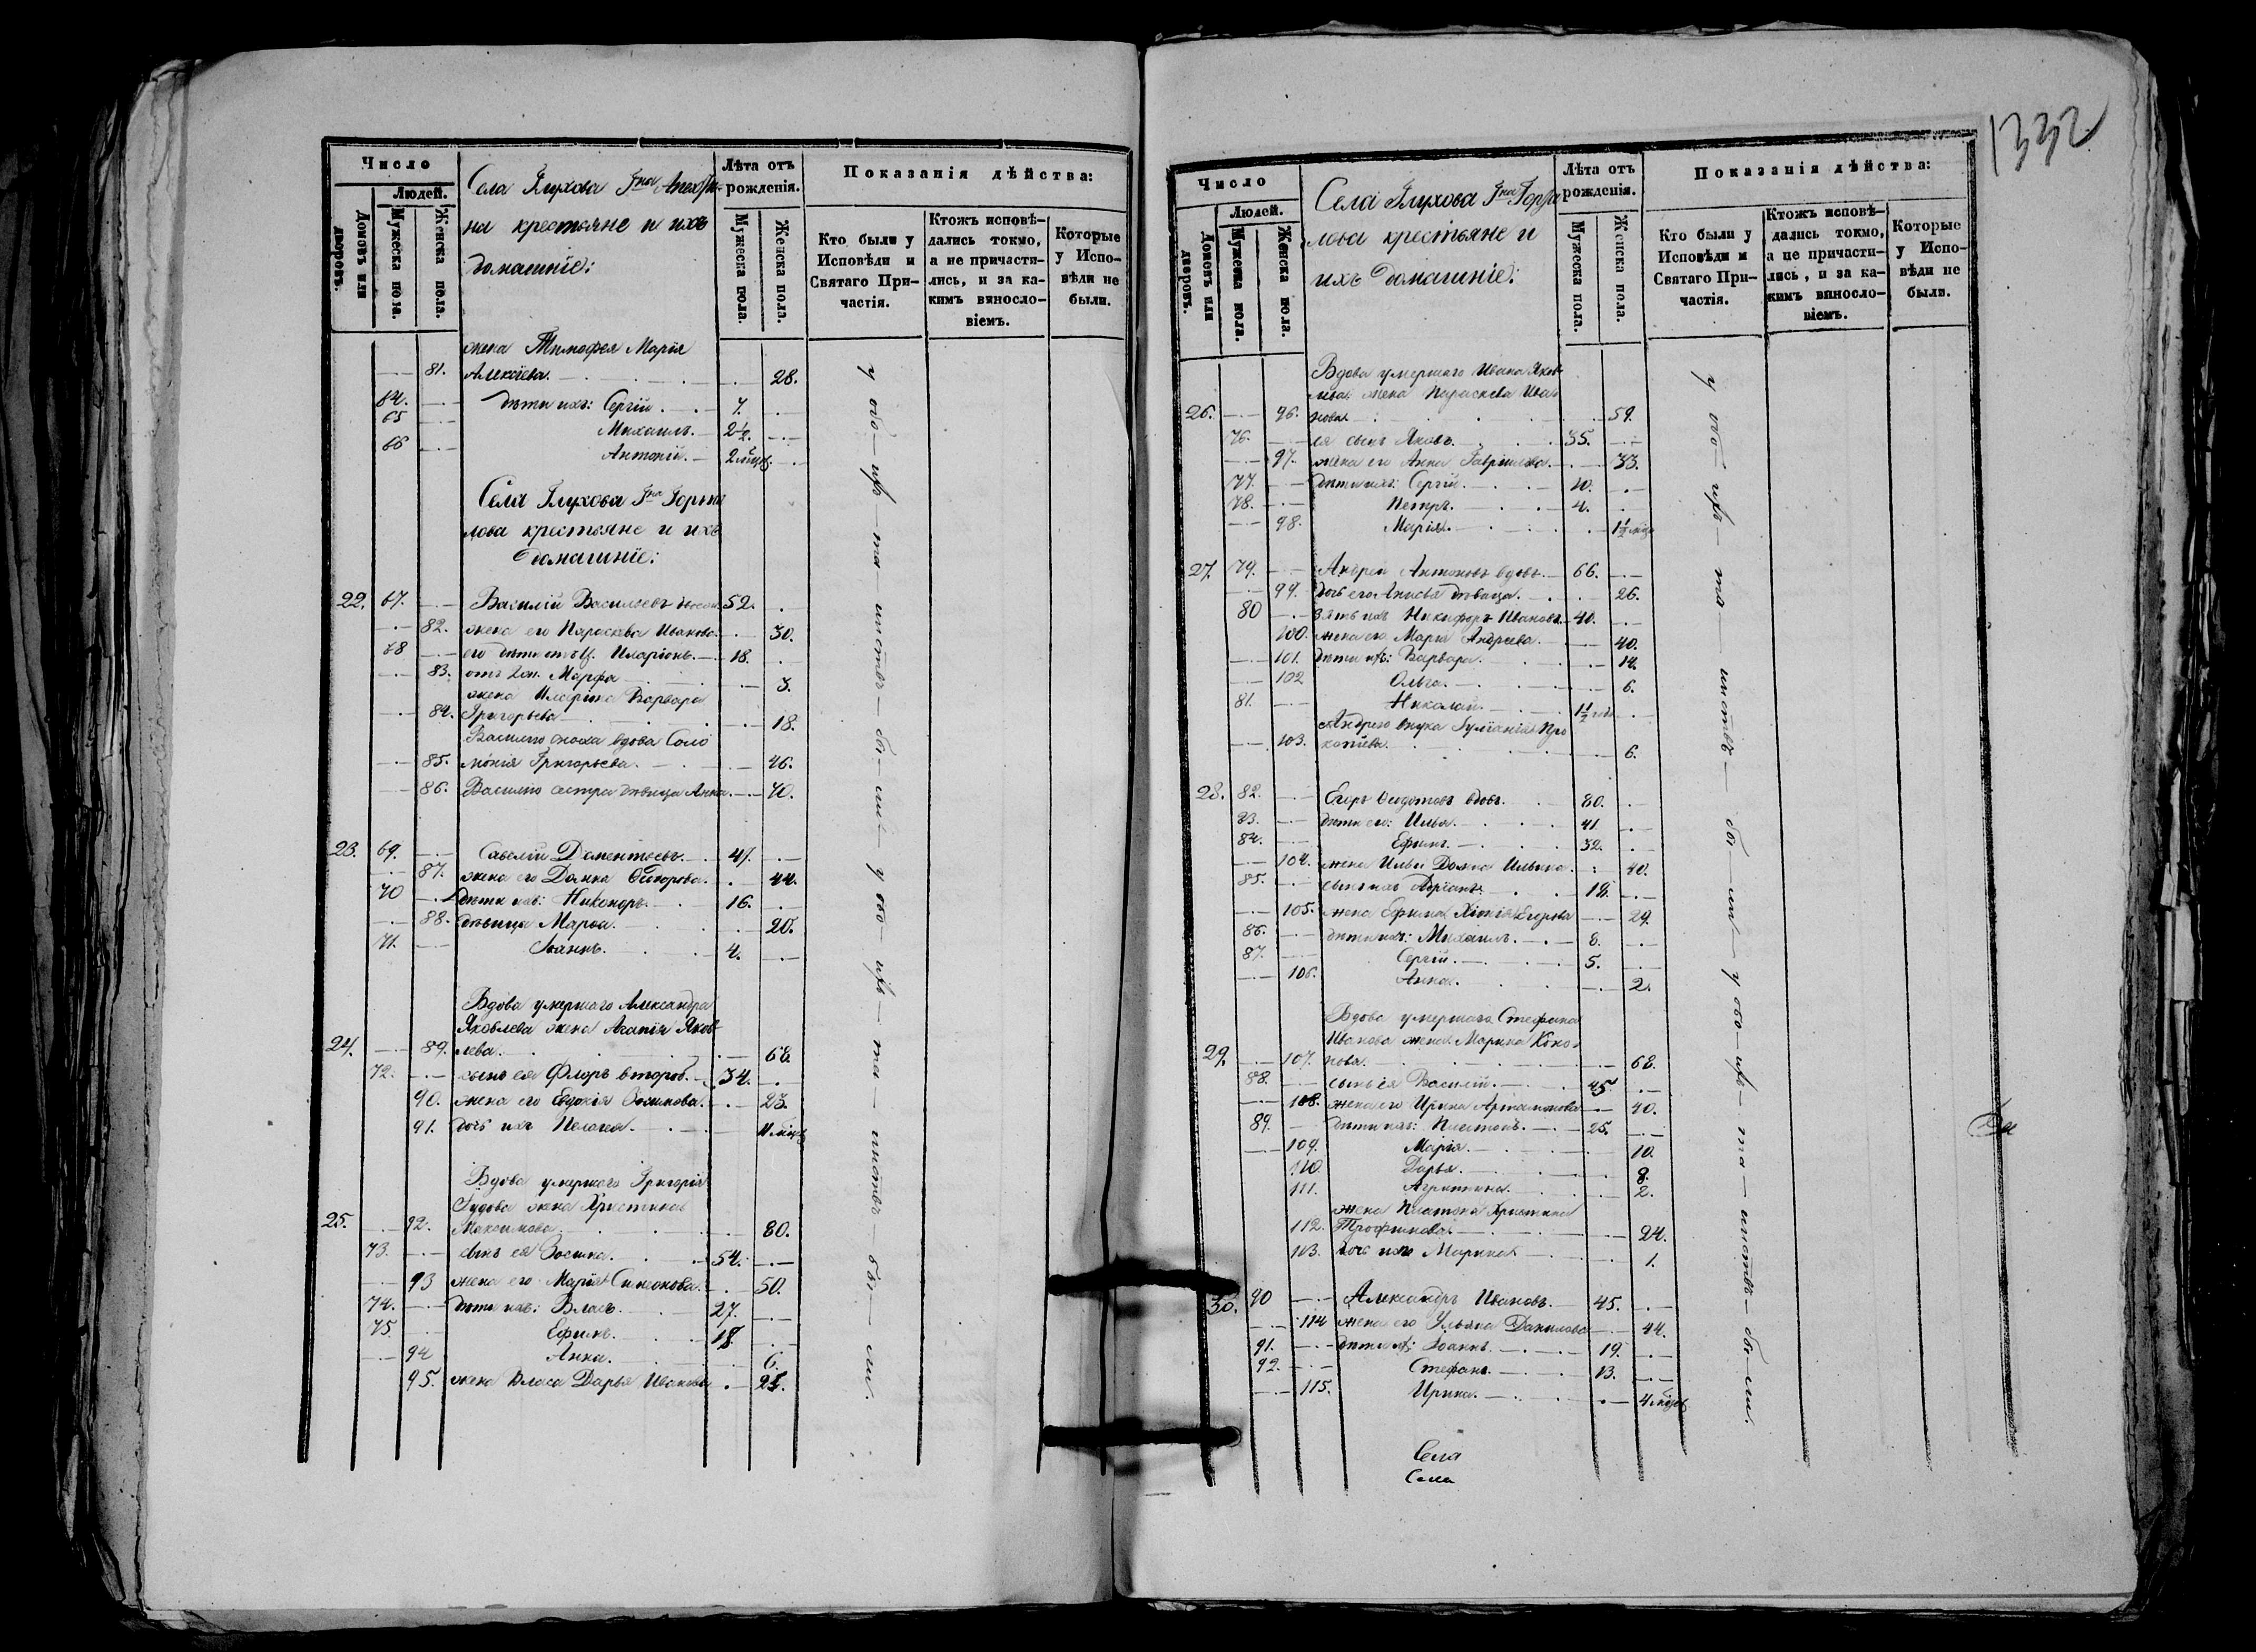 Число
Людей.
Домовъ или дворовъ.
Мужеска пола.
Женска пола.
Села Глухова Гна
на крестьяне и ихъ
домашніе:
Лѣта отъ рожденія.
Мужеска пола.
Женска пола.
Показанія дѣйства:
Кто были у Исповѣди и Святаго Причастія.
Ктожъ исповѣдались токмо, а не причастились, и за какимъ винословіемъ.
Которые у Исповѣди не были.
жена Тимофея Марія
81. Алексіева. 28.
64. дѣти ихъ: Сергій. 7.
65 Михаилъ. 2½.
66 Антоній. 2 мѣсяц.
Села Глухова Гна Горта
лова крестьяне и ихъ
домашніе:
22. 67. Василій Васильевъ 52.
82. жена его Параскева Иванова. 30.
68 его дѣти отъ Иларіонъ. 18.
83. отъ 2й. Марфа 3.
жена Иларіона Варвара
84. Григорьева 18.
Василію сноха вдова Соло
85. монія Григорьева. 46.
86. Василію сестра дѣвица Анна. 70.
23. 69. Савелій Дементьевъ. 47.
87. жена его Домна 44.
70 дѣти ихъ: Никоноръ. 16.
88. дѣвица Марѳа. 20.
71. Іоаннъ. 4.
Вдова умершаго Александра
Яковлева жена Агапія Яков
24. 89. лева. 68
72. сынъ ея Флоръ второб. 34.
90. жена его Евдокія Зосимова. 23.
91. дочь ихъ Пелагея. 11 мѣсяц
Вдова умершаго Григорія
жена Христина
25. 92. Максимова. 80.
73. сынъ ея Зосима. 54.
93 жена его Марія Симеонова. 50.
74. дѣти ихъ: Власъ. 27.
75. Ефимъ. 18
94 Анна. 6.
95. жена Власа Дарья Иванова 25.
у обо-ихъ-та-инствъ-бы-ли-у обо-ихъ-та-инствъ-бы-ли.
1332
Число
Людей.
Домовъ или дворовъ.
Мужеска пола.
Женска пола.
Села Глухова Гна Горта
лова крестьяне и
ихъ домашніе:
Лѣта отъ рожденія.
Мужеска пола.
Женска пола.
Показанія дѣйства:
Кто были у Исповѣди и Святаго Причастія.
Ктожъ исповѣдались токмо, а не причастились, и за какимъ винословіемъ.
Которые у Исповѣди не были.
Вдова умершаго Ивана Яков
лева жена Параскева Ива
26. 96. нова. 59.
76. ея сынъ Яковъ. 35.
97. жена его Анна Гавріилова. 33.
77. дѣти ихъ: Сергій. 10.
78. Петръ. 4.
98. Марія. 1½
27. 79. Андрей Антоновъ вдовъ. 66.
99. дочь его Анисья дѣвица. 26.
80 зять ихъ Никифоръ Ивановъ. 40.
100. жена его Марія Андреева. 40.
101. дѣти ихъ: Варвара. 14.
102 Ольга. 6.
81. Николай. 1½ года
Андрею внука Іуліанія Про
103. копіева. 6.
28. 82. Егоръ Ѳеодотовъ вдовъ. 80.
83. дѣти его: Илья. 41.
84. Ефимъ. 32.
104. жена Ильи Домна Ильина. 40.
85. сынъ ихъ Адріанъ. 18.
105. жена Ефима Хіонія Егорова 29.
86. дѣти ихъ: Михаилъ. 8.
87. Сергій. 5.
106. Анна. 2.
Вдова умершаго Стефана
Иванова жена Марина Коно
29. 107. нова. 68.
88. сынъ ея Василій. 45.
108. жена его Ирина Артамонова 40.
89. дѣти ихъ: Платонъ. 25.
109. Марія. 10.
110. Дарья. 8.
111. Агрипина. 2.
жена Платона Христина
112. Трофимова. 24.
113. дочь ихъ Марина 1.
30. 90 Александръ Ивановъ. 45.
114 жена его Ульяна Данилова 44.
91. дѣти ихъ: Іоаннъ. 19.
92. Стефанъ. 13.
115. Ирина. 4 мѣсяц
у обо-ихъ-та-инствъ-бы-ли-у обо-ихъ-та-инствъ-бы-ли.
Села
Села